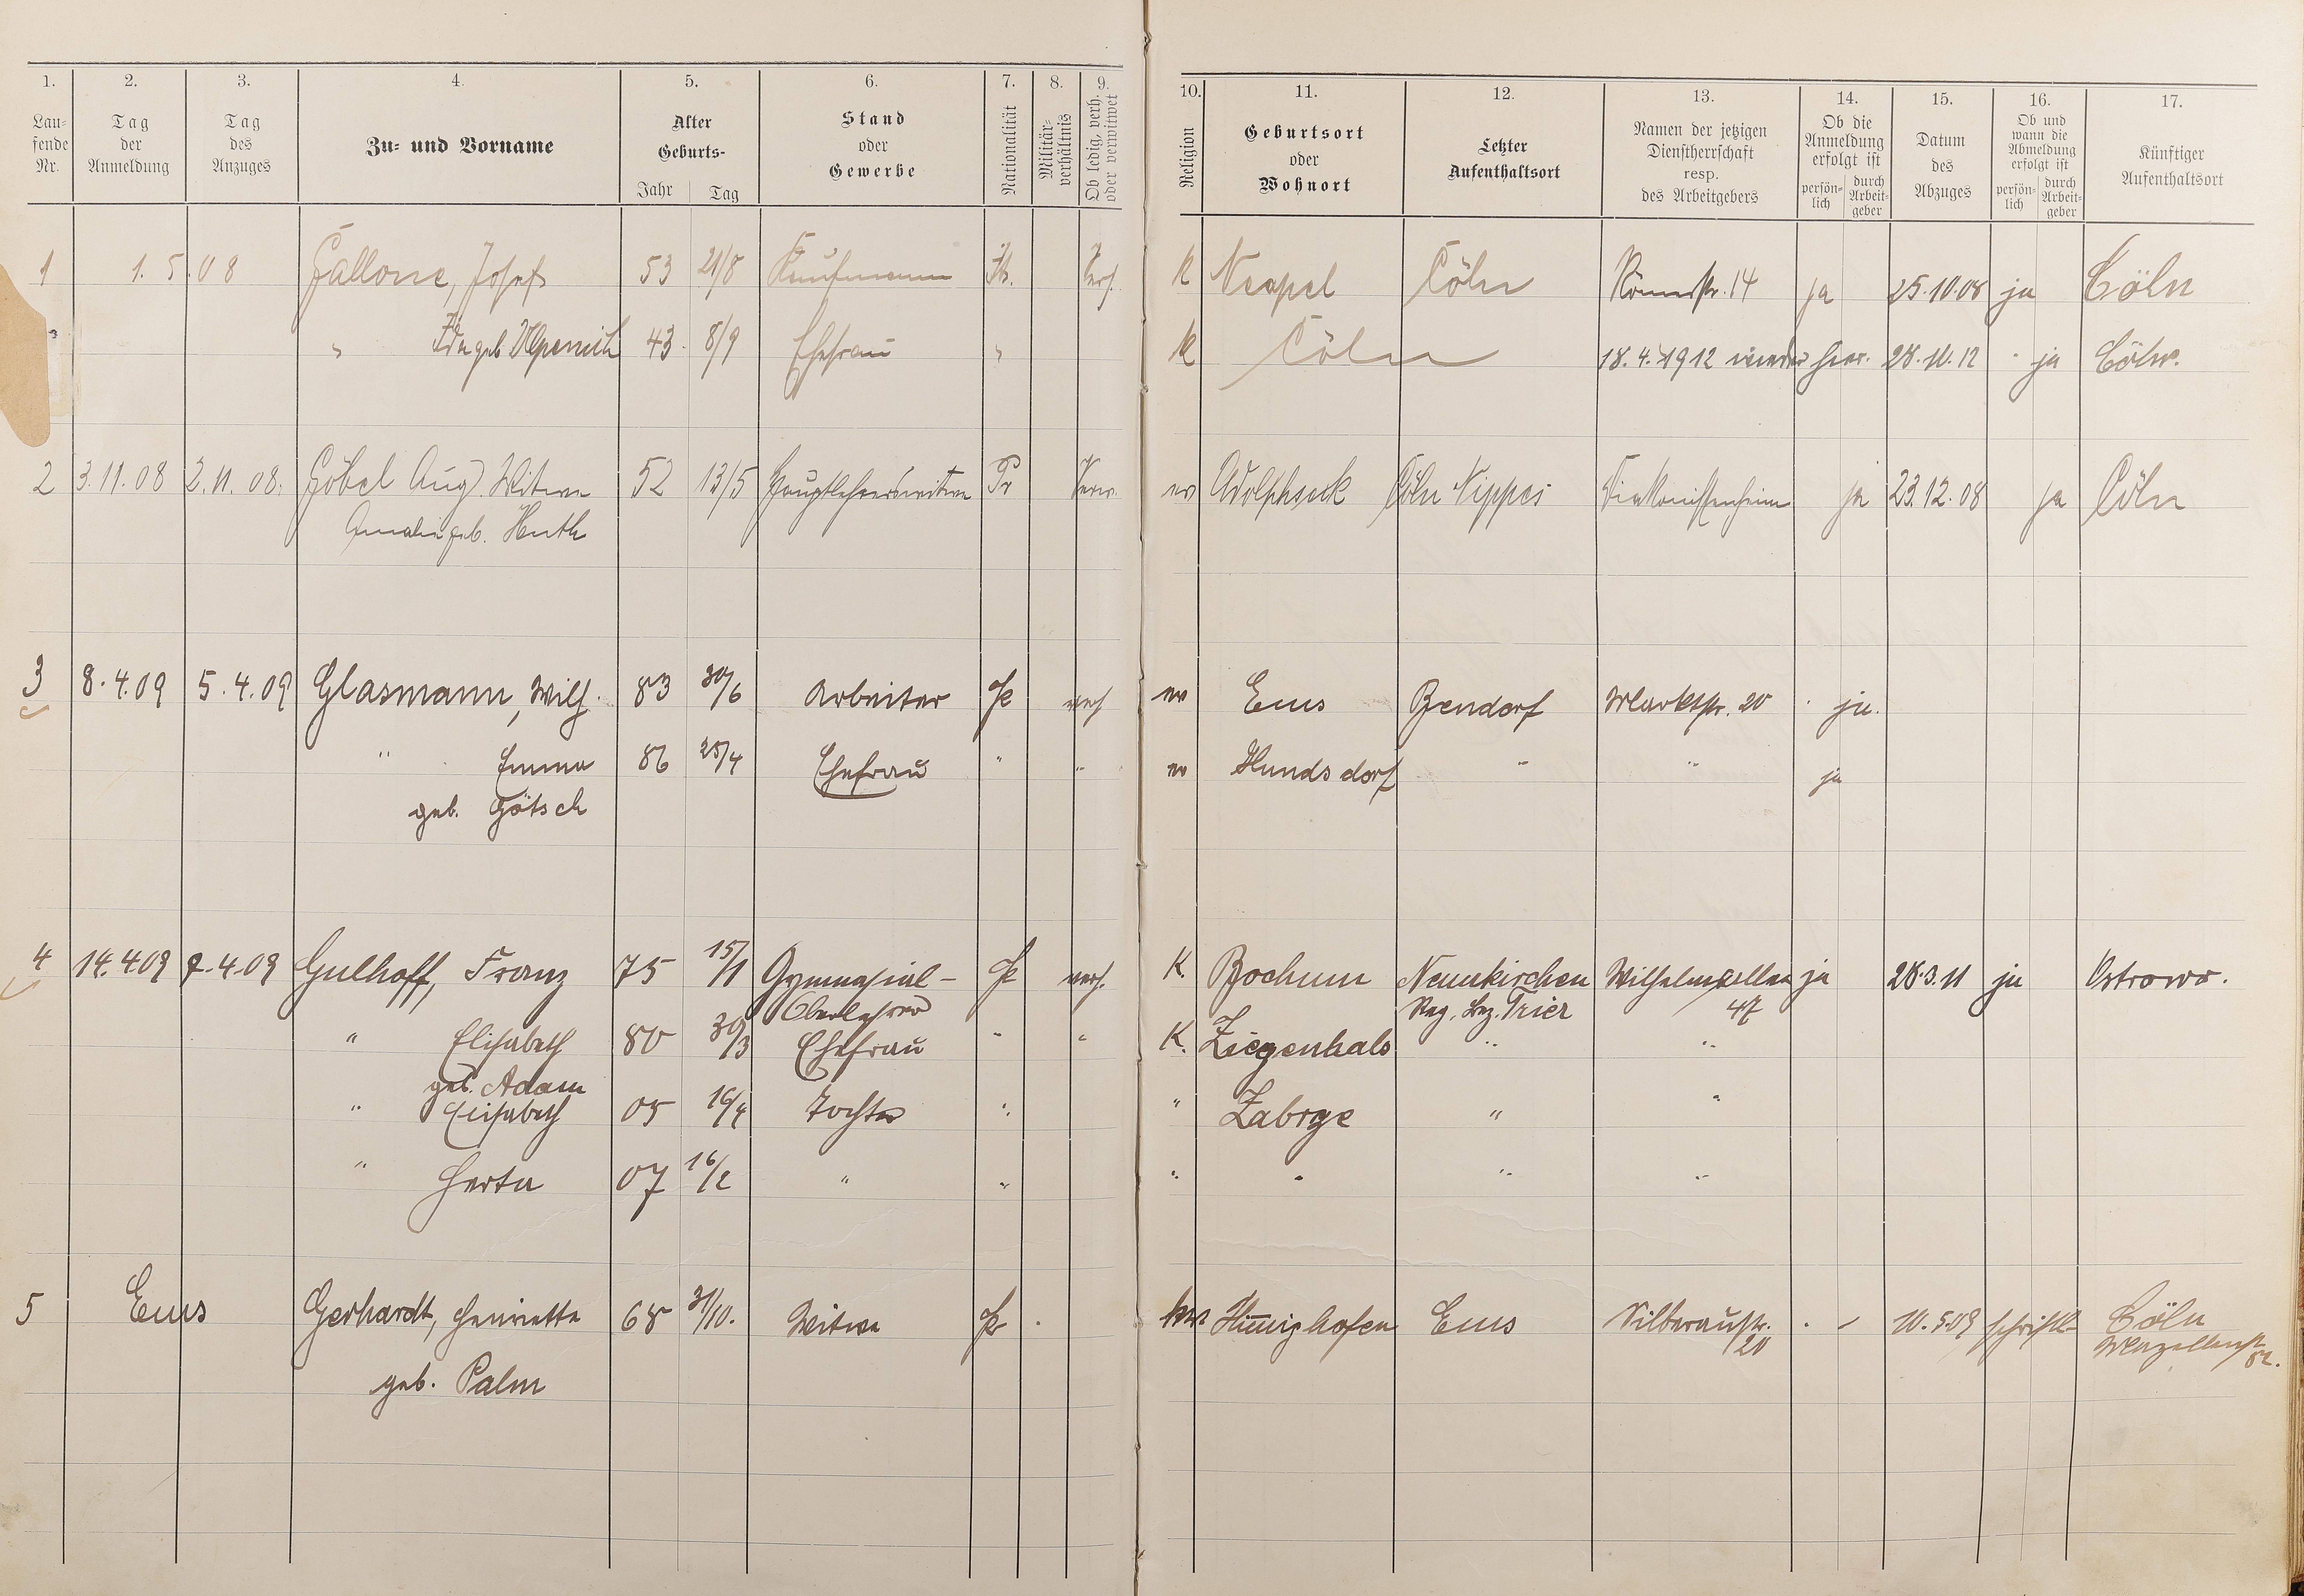 1. 2. 3. 4. 5. 6. 7. 8. 9. 10. 11. 12. 13. 14. 15. 16. 17.
Laufende Nr.
Tag der Anmeldung
Tag des Anzuges
Zu- und Vorname
Alter Geburts- Jahr Tag
Stand oder Gewerbe
Nationalität
Militär-verhältnis
Ob ledig, verh. oder verwitwet
Religion
Geburtsort oder Wohnort
Letzter Aufenthaltsort
Namen der jetzigen Dienstherrschaft resp. des Arbeitgebers
Ob die Anmeldung erfolgt ist persönlich durch Arbeitgeber
Datum des Abzuges
Ob und wann die Abmeldung erfolgt ist persönlich durch Arbeitgeber
Künftiger Aufenthaltsort
1 1. 5. 08 Gallone, Josef 53 21/8 Kaufmann It. Verh. K Neapel Cöln Römerstr. 14 ja 25.10.08 ja Cöln
" geb. 43 8/9 Ehefrau " K Cöln 18. 4. 1912 wieder hier. 28. 10. 12 ja Cöln.
2 3. 11. 08 2. 11. 08. Göbel Aug. Witwe 52 13/5 Hauptlehrerswitwe Pr Verw. ev Adolphseck Cöln Nippes Diakonissenheim ja 23.12.08 ja Cöln
Amalie geb. Huth
3 8. 4. 09 5. 4. 09 Glasmann, Wilh. 83 30/6 Arbeiter Pr verh ev Ems Bendorf Marktstr. 20 ja.
" Emma 86 25/4 Ehefrau " " ev Hundsdorf " " ja
geb. Götsch
4 14. 4 09 7. 4. 09 Gulhoff, Franz 75 15/1 Gymnasial- Pr verh. K. Bochum Neunkirchen Wilhelmsallee ja 28. 3. 11 ja Ostrowo.
Oberlehrer Reg. Bez. Trier 47
" Elisabeth 80 30/3 Ehefrau " " K. Ziegenhals " "
geb. Adam
" Elisabeth 05 16/4 Tochter " " Zabrze " "
" Herta 07 16/2 " " " " " "
5 Ems Gerhardt, Henriette 68 31/10. Witwe Pr Ems Silberaustr. 10. 5. 09 schriftl. Cöln
geb. Palm 20